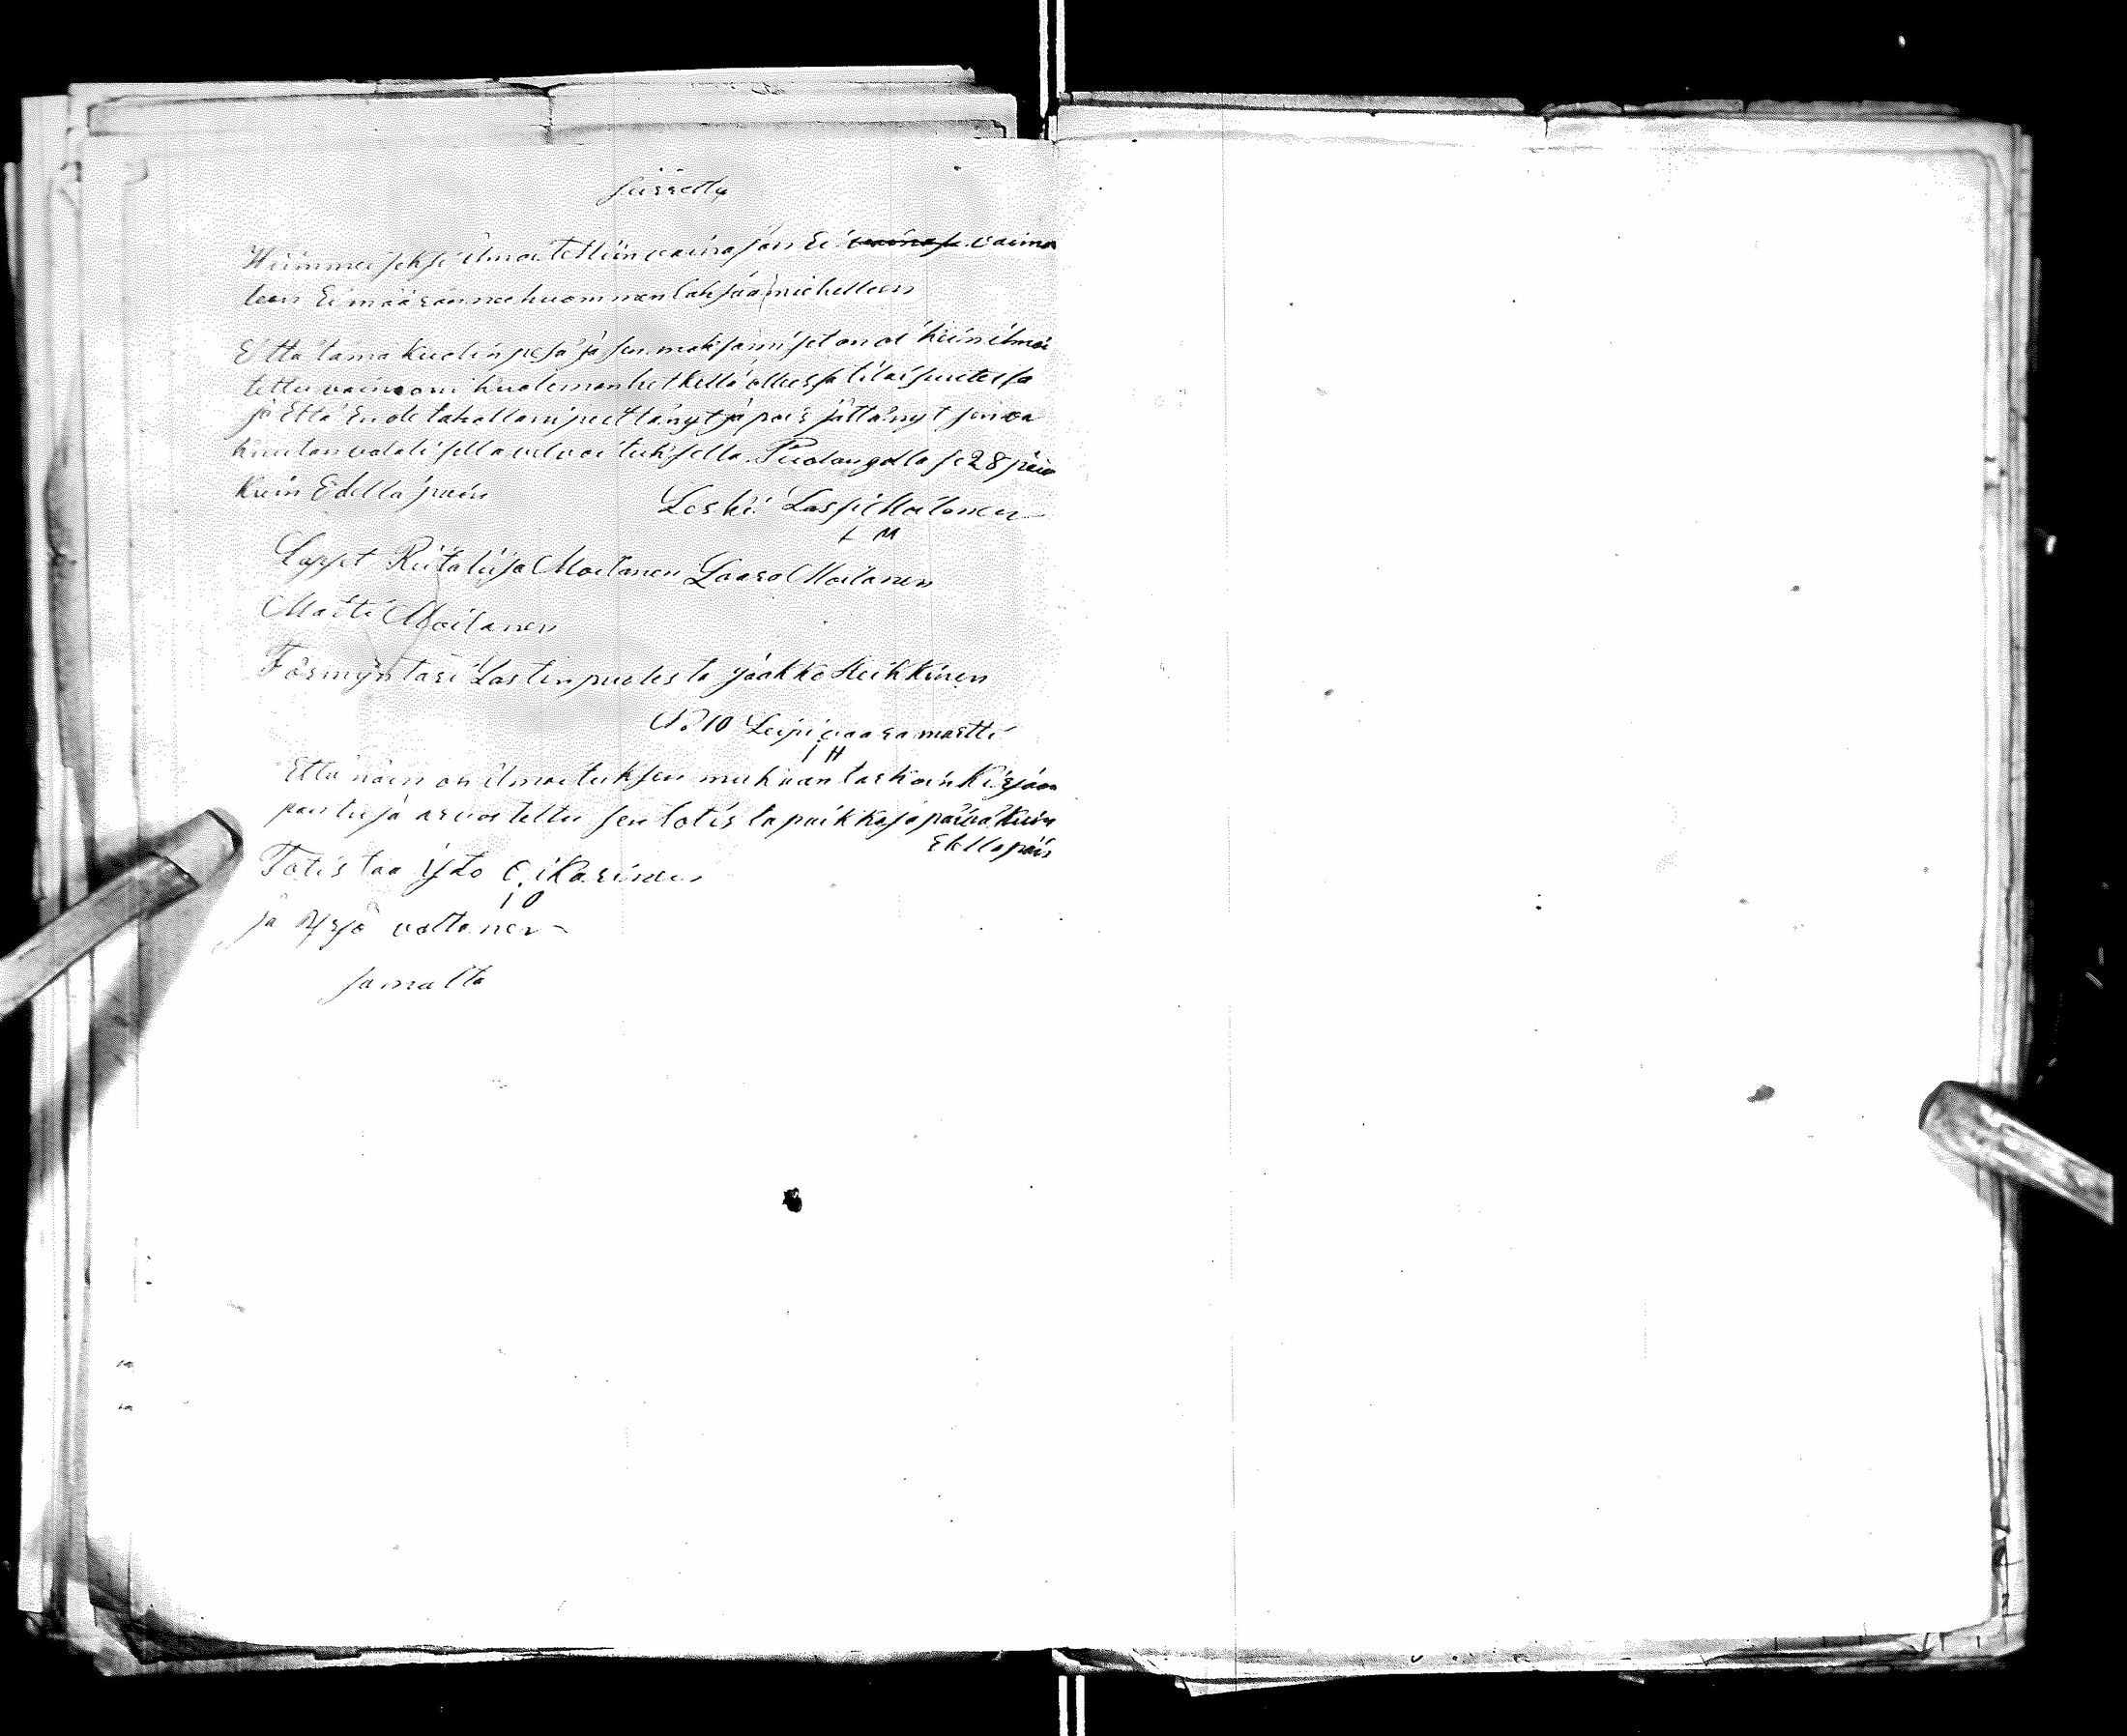 siirretty
Wiimmeiseksi ilmoitettiin vainajan Ei vainaja vaimo
leen Ei määränneen huommen lahjaa miehelleen
Että tämä kuolin pesä ja sen maksamiset on oi kein ilmoi
tettu vaimoni kuoleman hetkellä ollessa tilaisuutessa
ja Että En ole tahallani peittänyt ja pois jättänyt sen va
kuutan valalisella velvoituksella Puolangalla se 28 päivä
kuin Edellä päin
Leski Lassi Moilanen
L M
Lapset Riitaliisa Moilanen Laara Moilanen
Matti Moilanen
Förmyntäri Lasten puolesta Jaakko Heikkinen
No 10 Leipivaara martti
I H
Että näin on ilmoituksen mukaan tarkoin Kirjaan
pantu ja arvosteltu sen totista paikka ja päivä kuin
Edellä päin
Totistaa Yrjö Oikarinen
I O
ja Yrjö valtanen
samalta